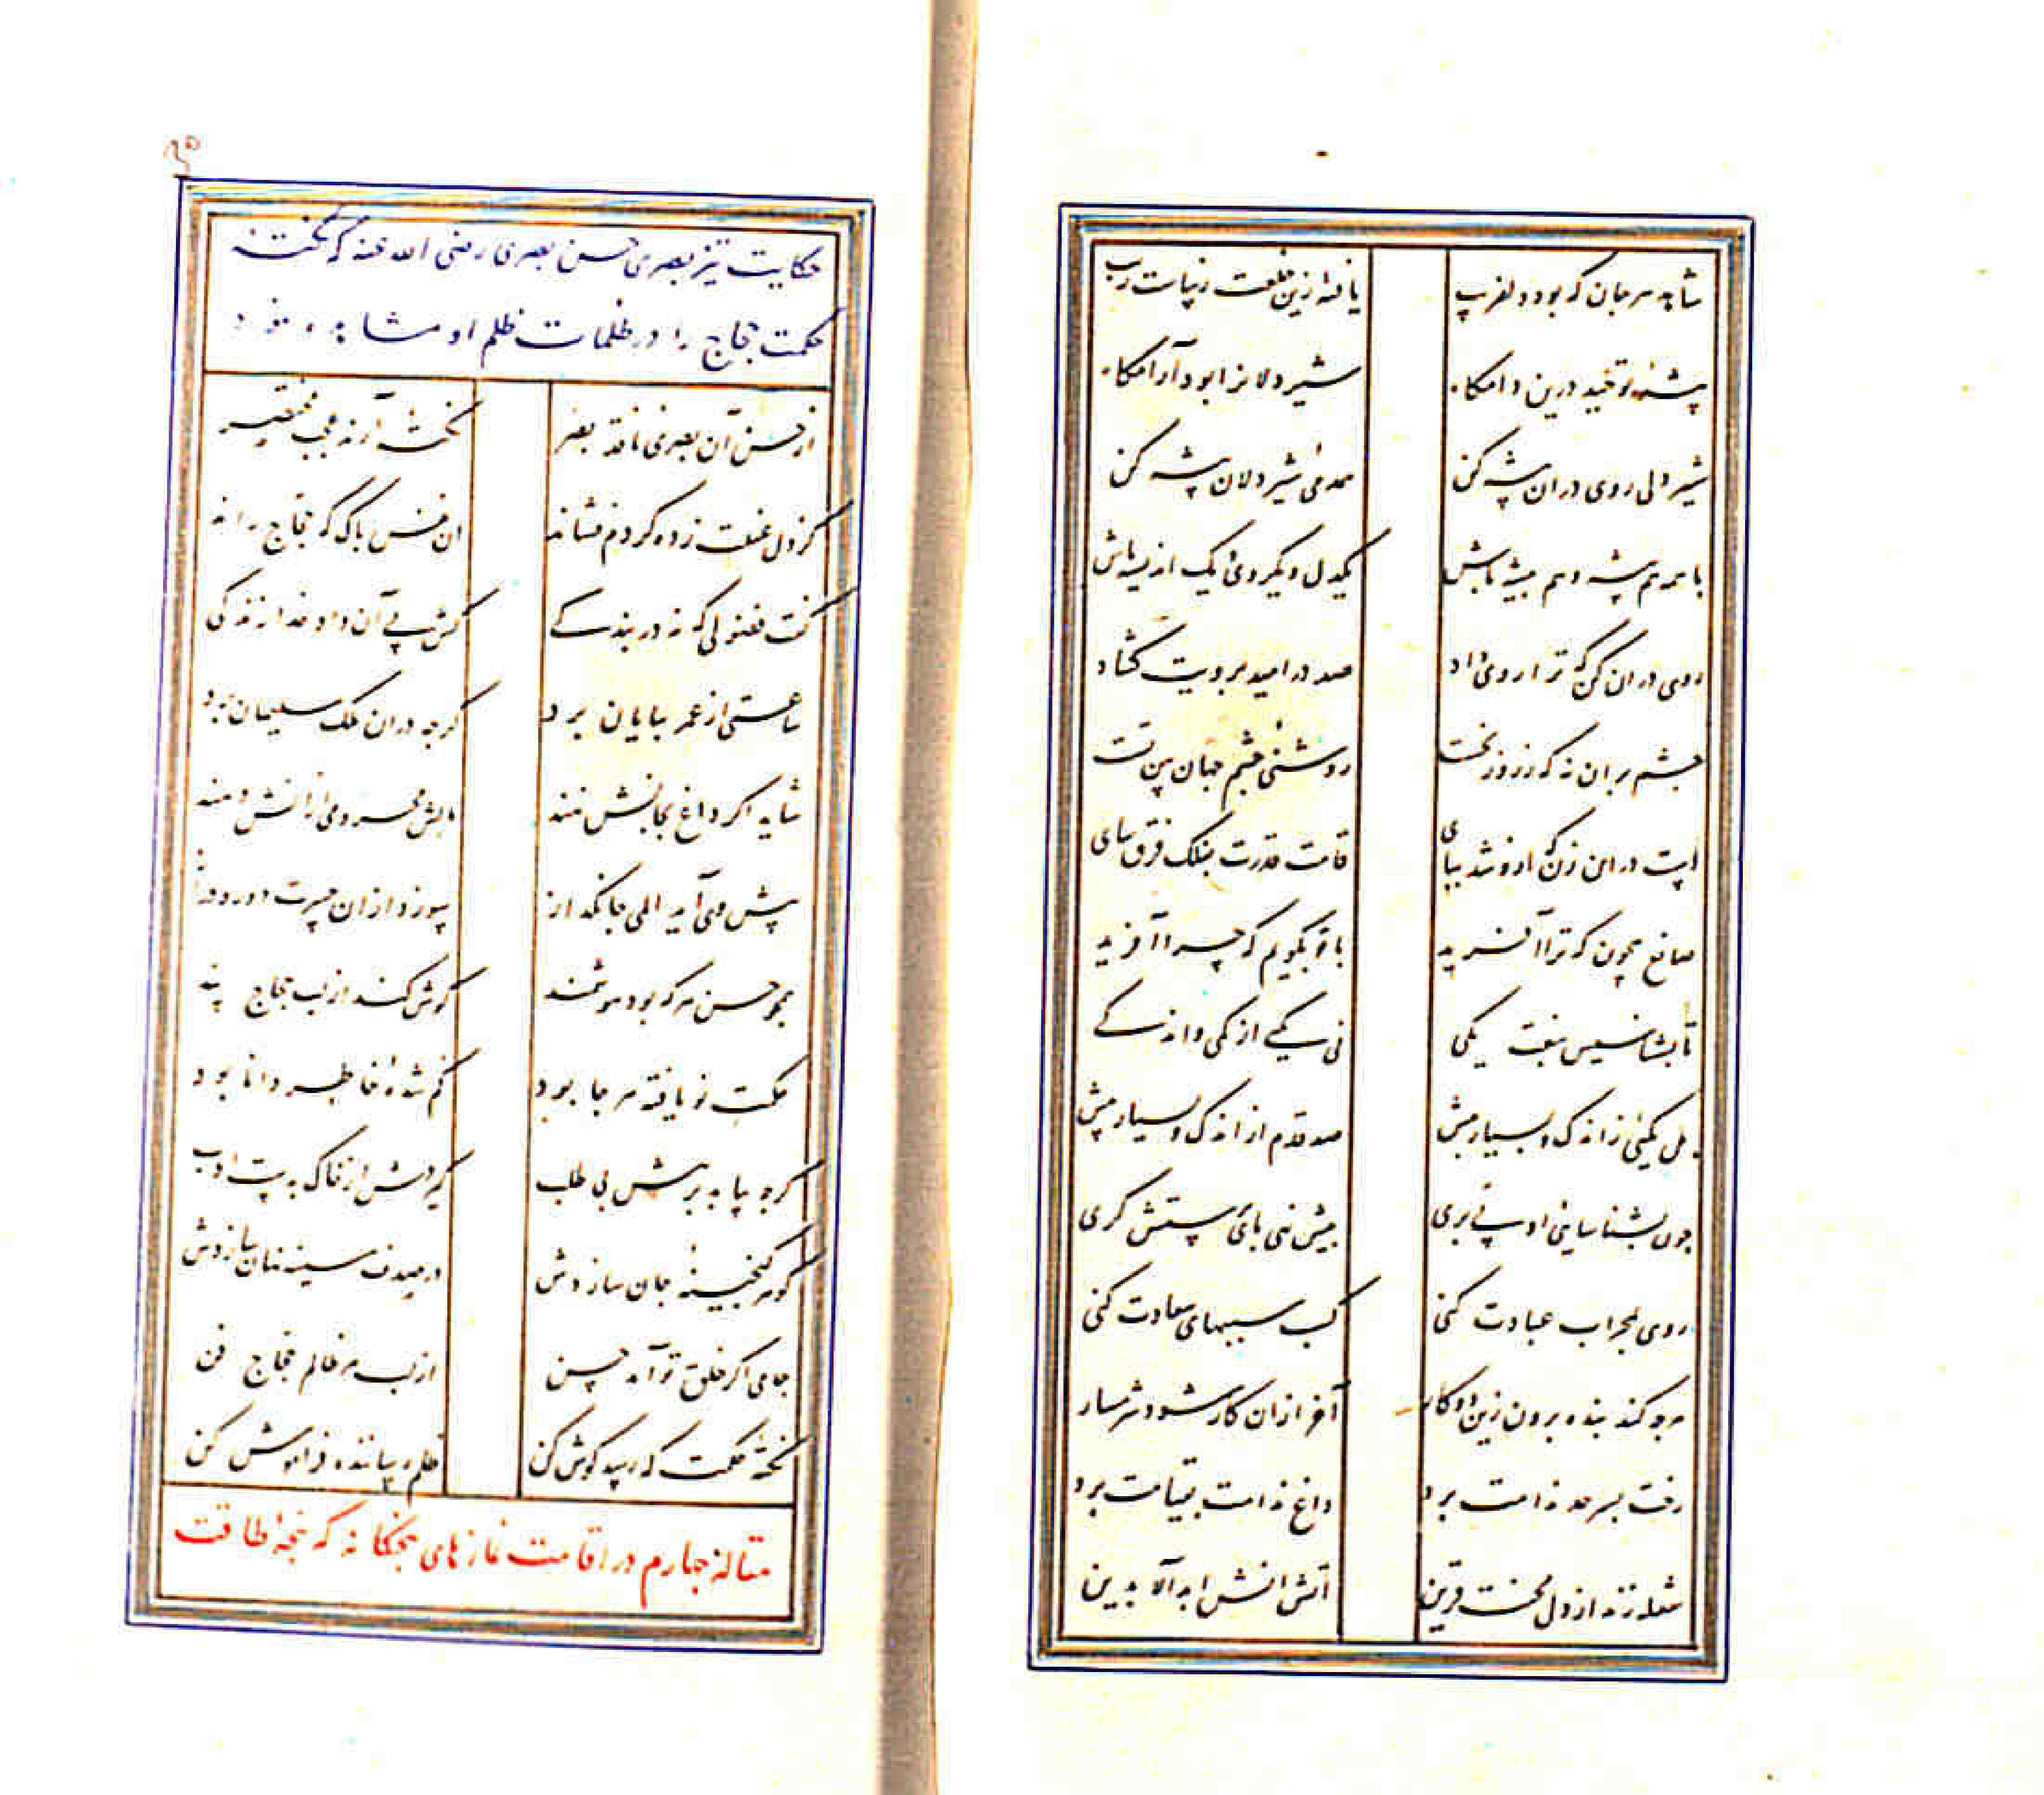 شاهد هر جان که بود دلفریب
یافته ازین خلعت زیباست زیب
بیشه توحید درین دامکاه
شیر دلانرا بود آرامکاه
شیر دلی روی دران بیشه کن
همدمی شیر دلان پیشه کن
با همه هم پیشه و هم بیشه باش
یکدل و یکروی و یک اندیشه باش
روی دران کن که ترا روی داد
صد در امید برویت کشاد
چشم بران نه که ز روز نخست
روشنی چشم جهان بین تست
ایست دران زن که ازو شد بپای
قامت قدرت بفلک فرق سای
صانع بیچون که ترا آفرید
با تو بکویم که چرا آفرید
تا بشناسیش بنعت یکی
نی یکیی از یکی و اندکی
بل یکیی ز اندک و بسیار پیش
صد قدم از اندک و بسیار پیش
چون بشناسایی او پی بری
پیش نهی پای پرستش کری
روی بمحراب عبادت کنی
کسب سببهای سعادت کنی
هرچه کند بنده برون زین دو کار
آخر ازان کار شود شرمسار
رخت بسرحد ندامت برد
داغ ندامت بقیامت برد
شعله زند از دل محنت قرین
آتش اتش ابد الآبدین
۲۵
حکایت تیز بصری حسن بصری رضی الله عنه که نکته
حکمت حجاج را در ظلمات ظلم او مشاهده نمود
از حسن آن بصری ناقد بصر
نکته آرند عجب مختصر
کز دل غفلت زده کردم فشاند
آن نفس پاک که حجاج راند
کفت فضولی که نه در بندکی
کش پی آن داد خدا زندکی
ساعتی از عمر بپایان برد
کرچه دران ملک سلیمان برد
شاید اکر داغ بجانش نهند
مالش محرومی ازانش دهند
پیش وی آید المی جانکداز
سوزد ازان حسرت دور و دراز
همچو حسن هر که بود هوشمند
کوش کند از لب حجاج پند
حکمت نو یافته هر جا بود
کم شده خاطر دانا بود
کرچه بیابد برهش بی طلب
کیردش از خاک بدست ادب
کوهر کنجینه جان سازدش
در صدف سینه نهان سازدش
جامی اکر خلق تو آمد حسن
از لب هر ظالم حجاج فن
نکته حکمت که رسد کوش کن
ظلم رساننده فراموش کن
مقاله چهارم در اقامت نمازهای پنجکانه که پنجه طاقت